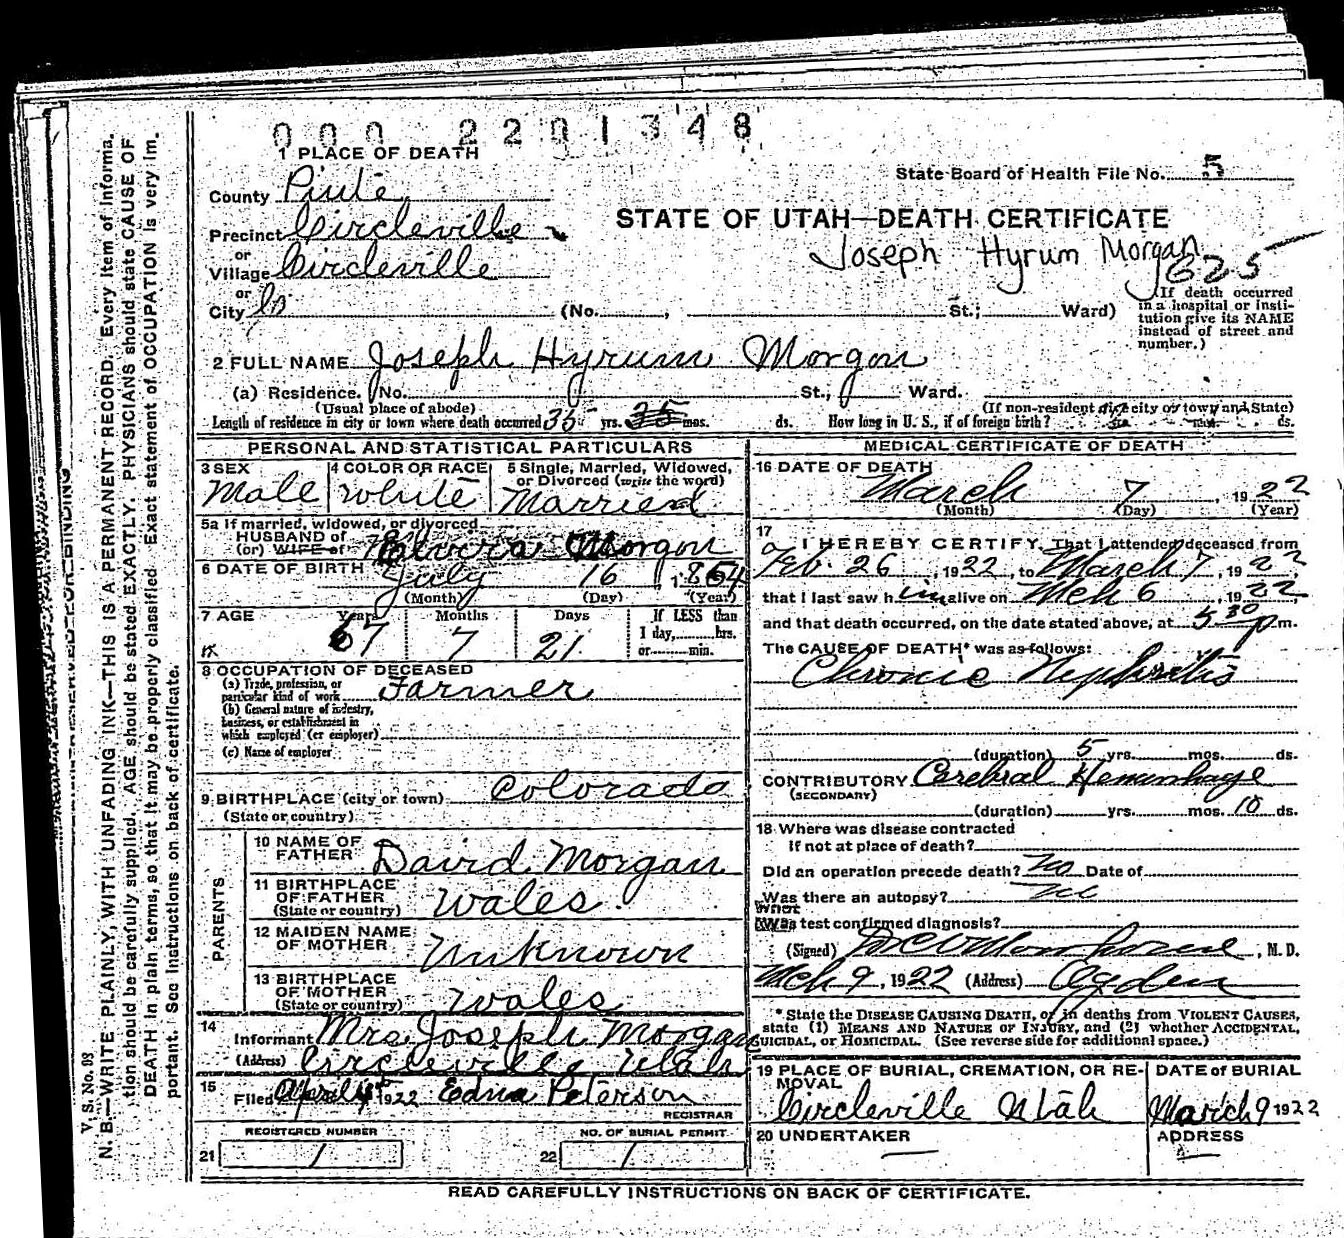 000 2201348
1 PLACE OF DEATH
State Board of Health File No. 5
County Piute
STATE OF UTAH—DEATH CERTIFICATE
Precinct Circleville
Joseph Hyrum Morgan
or
Village Circleville
625
or
City
(No. , St.; Ward)
(If death occurred
in a hospital or insti-
tution give its NAME
instead of street and
number.)
2 FULL NAME Joseph Hyrum Morgan
(a) Residence. No. St., Ward.
(Usual place of abode)
(If non-resident give city or town and State)
Length of residence in city or town where death occurred 35 yrs. 35 mos. ds. How long in U. S., if of foreign birth? yrs. mos. ds.
PERSONAL AND STATISTICAL PARTICULARS
3 SEX
Male
4 COLOR OR RACE
White
5 Single, Married, Widowed,
or Divorced (write the word)
Married
5a If married, widowed, or divorced
HUSBAND of
(or) WIFE of
Morgan
6 DATE OF BIRTH July 16 1854
(Month) (Day) (Year)
7 AGE
Years Months Days
67 7 21
If LESS than
1 day, hrs.
or min.
8 OCCUPATION OF DECEASED
(a) Trade, profession, or
particular kind of work Farmer
(b) General nature of industry,
business, or establishment in
which employed (or employer)
(c) Name of employer
9 BIRTHPLACE (city or town) Colorado
(State or country)
PARENTS
10 NAME OF
FATHER David Morgan
11 BIRTHPLACE
OF FATHER
(State or country) Wales
12 MAIDEN NAME
OF MOTHER Unknown
13 BIRTHPLACE
OF MOTHER
(State or country) Wales
14
Informant Mrs Joseph Morgan
(Address) Circleville Utah
15
Filed April 4th 1922 Edna Peterson
REGISTRAR
REGISTERED NUMBER
21 1
NO. OF BURIAL PERMIT
22 1
MEDICAL CERTIFICATE OF DEATH
16 DATE OF DEATH
March 7, 1922
(Month) (Day) (Year)
17
I HEREBY CERTIFY, That I attended deceased from
Feb. 26, 1922, to March 7, 1922
that I last saw him alive on Mch 6, 1922
and that death occurred, on the date stated above, at 5 30 p m.
The CAUSE OF DEATH* was as follows:
Chronic Nephritis
(duration) 5 yrs. mos. ds.
CONTRIBUTORY Cerebral Hemmhage
(SECONDARY)
(duration) yrs. mos. 10 ds.
18 Where was disease contracted
If not at place of death?
Did an operation precede death? No Date of
Was there an autopsy? No
What
Was test confirmed diagnosis?
(Signed) , M. D.
Mch 9, 1922 (Address) Ogden
* State the DISEASE CAUSING DEATH, or in deaths from VIOLENT CAUSES,
state (1) MEANS AND NATURE OF INJURY, and (2) whether ACCIDENTAL,
SUICIDAL, or HOMICIDAL. (See reverse side for additional space.)
19 PLACE OF BURIAL, CREMATION, OR RE-
MOVAL
Circleville Utah
DATE of BURIAL
March 9 1922
20 UNDERTAKER
ADDRESS
READ CAREFULLY INSTRUCTIONS ON BACK OF CERTIFICATE.
V. S. No. 98
N. B.—WRITE PLAINLY, WITH UNFADING INK—THIS IS A PERMANENT RECORD. Every item of informa-
tion should be carefully supplied. AGE should be stated EXACTLY. PHYSICIANS should state CAUSE OF
DEATH in plain terms, so that it may be properly classified. Exact statement of OCCUPATION is very im-
portant. See instructions on back of certificate.